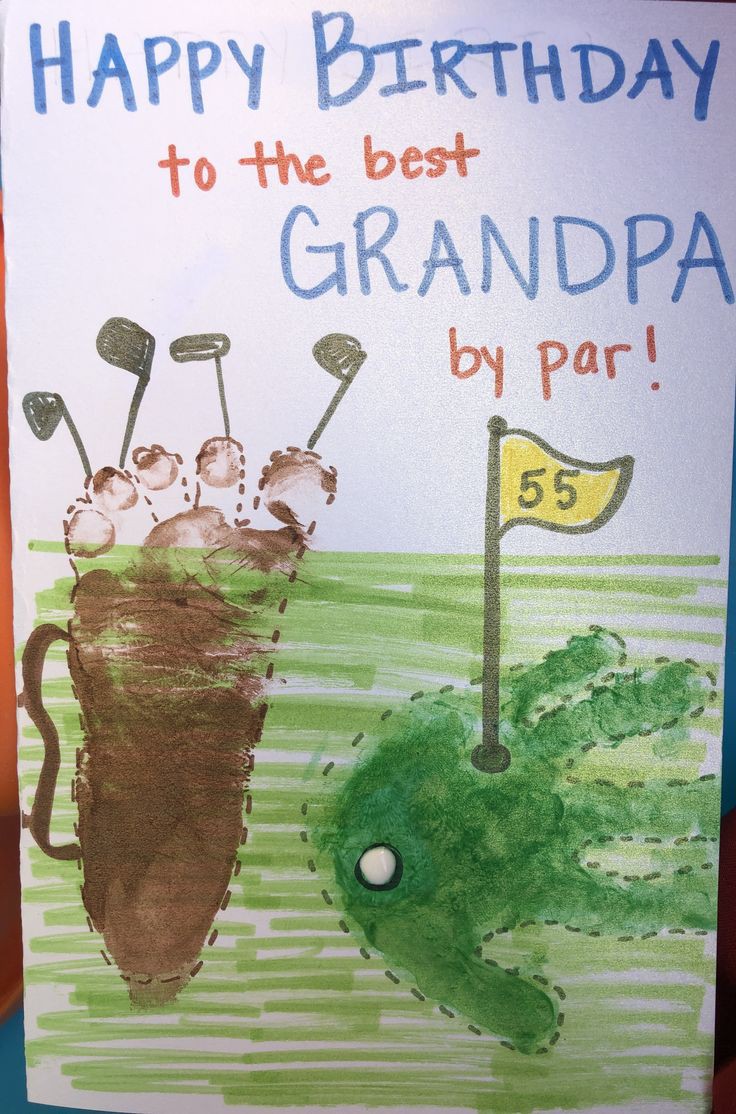 HAPPY BIRTHDAY
to the best
GRANDPA
by par!
55